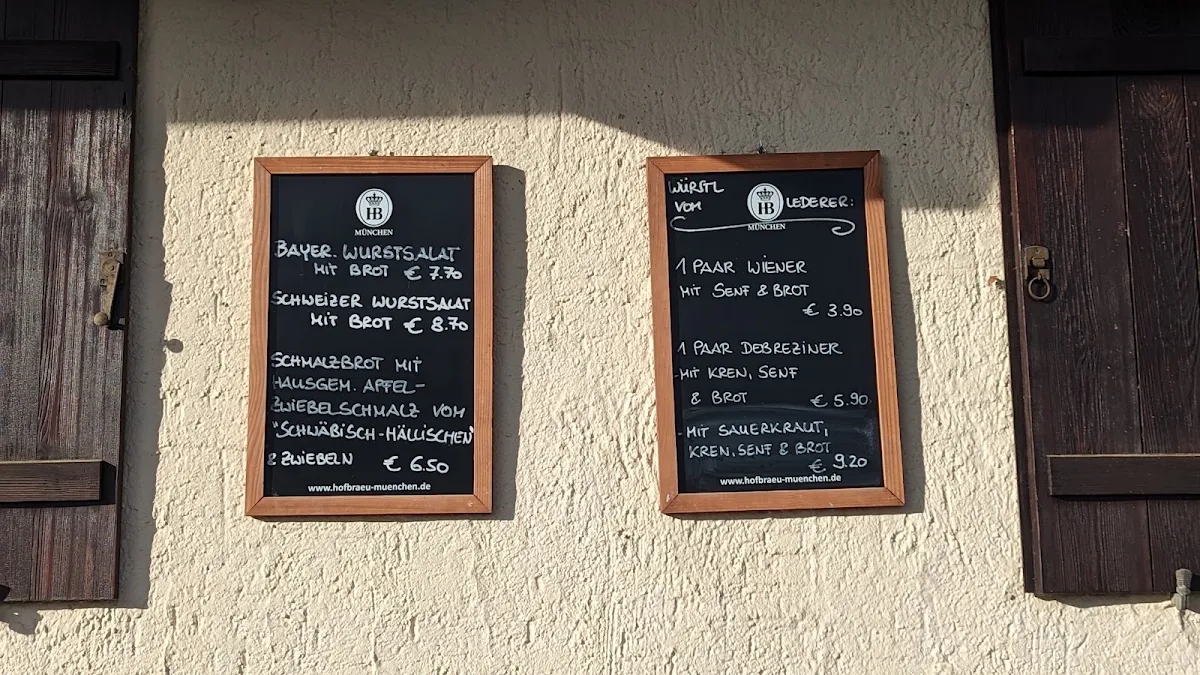 HB
MÜNCHEN
BAYER. WURSTSALAT
MIT BROT € 7.70
SCHWEIZER WURSTSALAT
MIT BROT € 8.70
SCHMALZBROT MIT
HAUSGEM. APFEL-
ZWIEBELSCHMALZ VOM
"SCHWÄBISCH-HÄLLISCHEN"
& ZWIEBELN € 6.50
www.hofbraeu-muenchen.de
WÜRSTL
VOM LEDERER:
HB
MÜNCHEN
1 PAAR WIENER
MIT SENF & BROT
€ 3.90
1 PAAR DEBREZINER
-MIT KREN, SENF
& BROT € 5.90
-MIT SAUERKRAUT,
KREN, SENF & BROT
€ 9.20
www.hofbraeu-muenchen.de